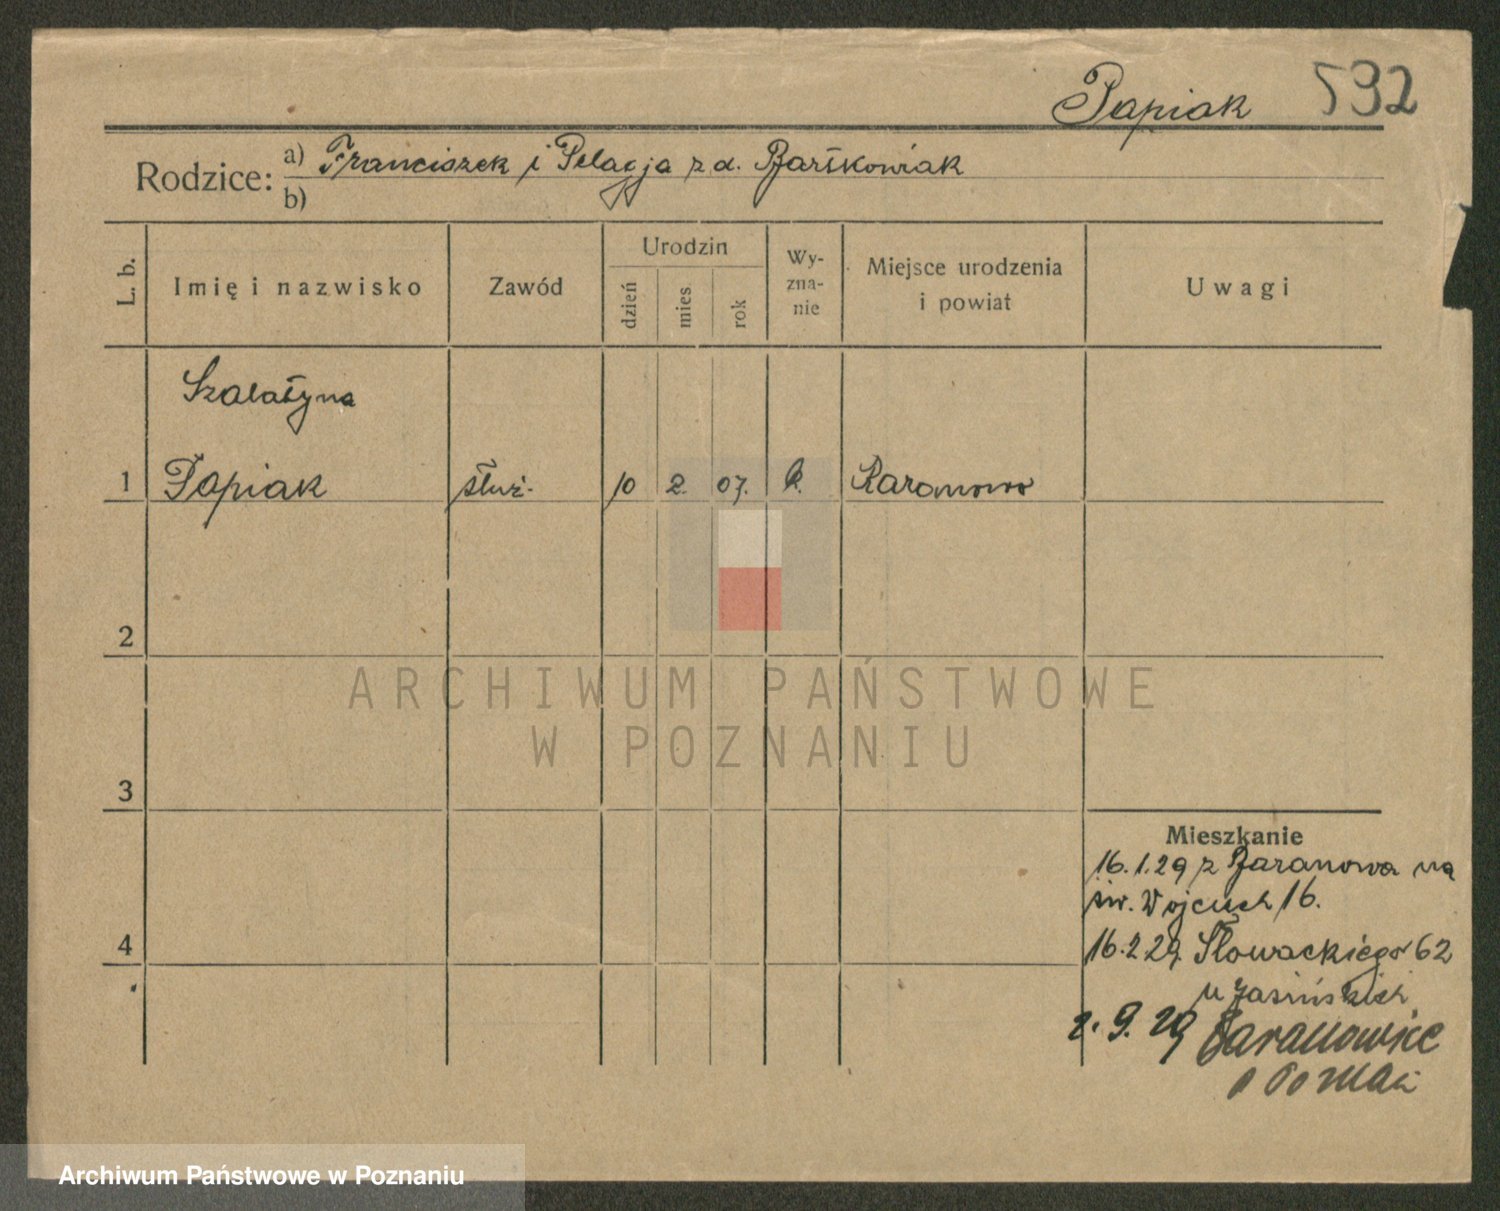 Papiak 592
Rodzice: a) Franciszek i Pelagja z d. Bartkowiak
b)
L. b.
Imię i nazwisko
Zawód
Urodzin
dzień
mies
rok
Wy-
zna-
nie
Miejsce urodzenia
i powiat
Uwagi
1
Papiak
służ.
10 2. 07.
R.
2
3
4
Mieszkanie
16.1.29 z Baranowa na
św. Wojciech 16.
16.2 29. Słowackiego 62
u Jasińskich
2. 9. 29
ARCHIWUM PAŃSTWOWE
W POZNANIU
Archiwum Państwowe w Poznaniu